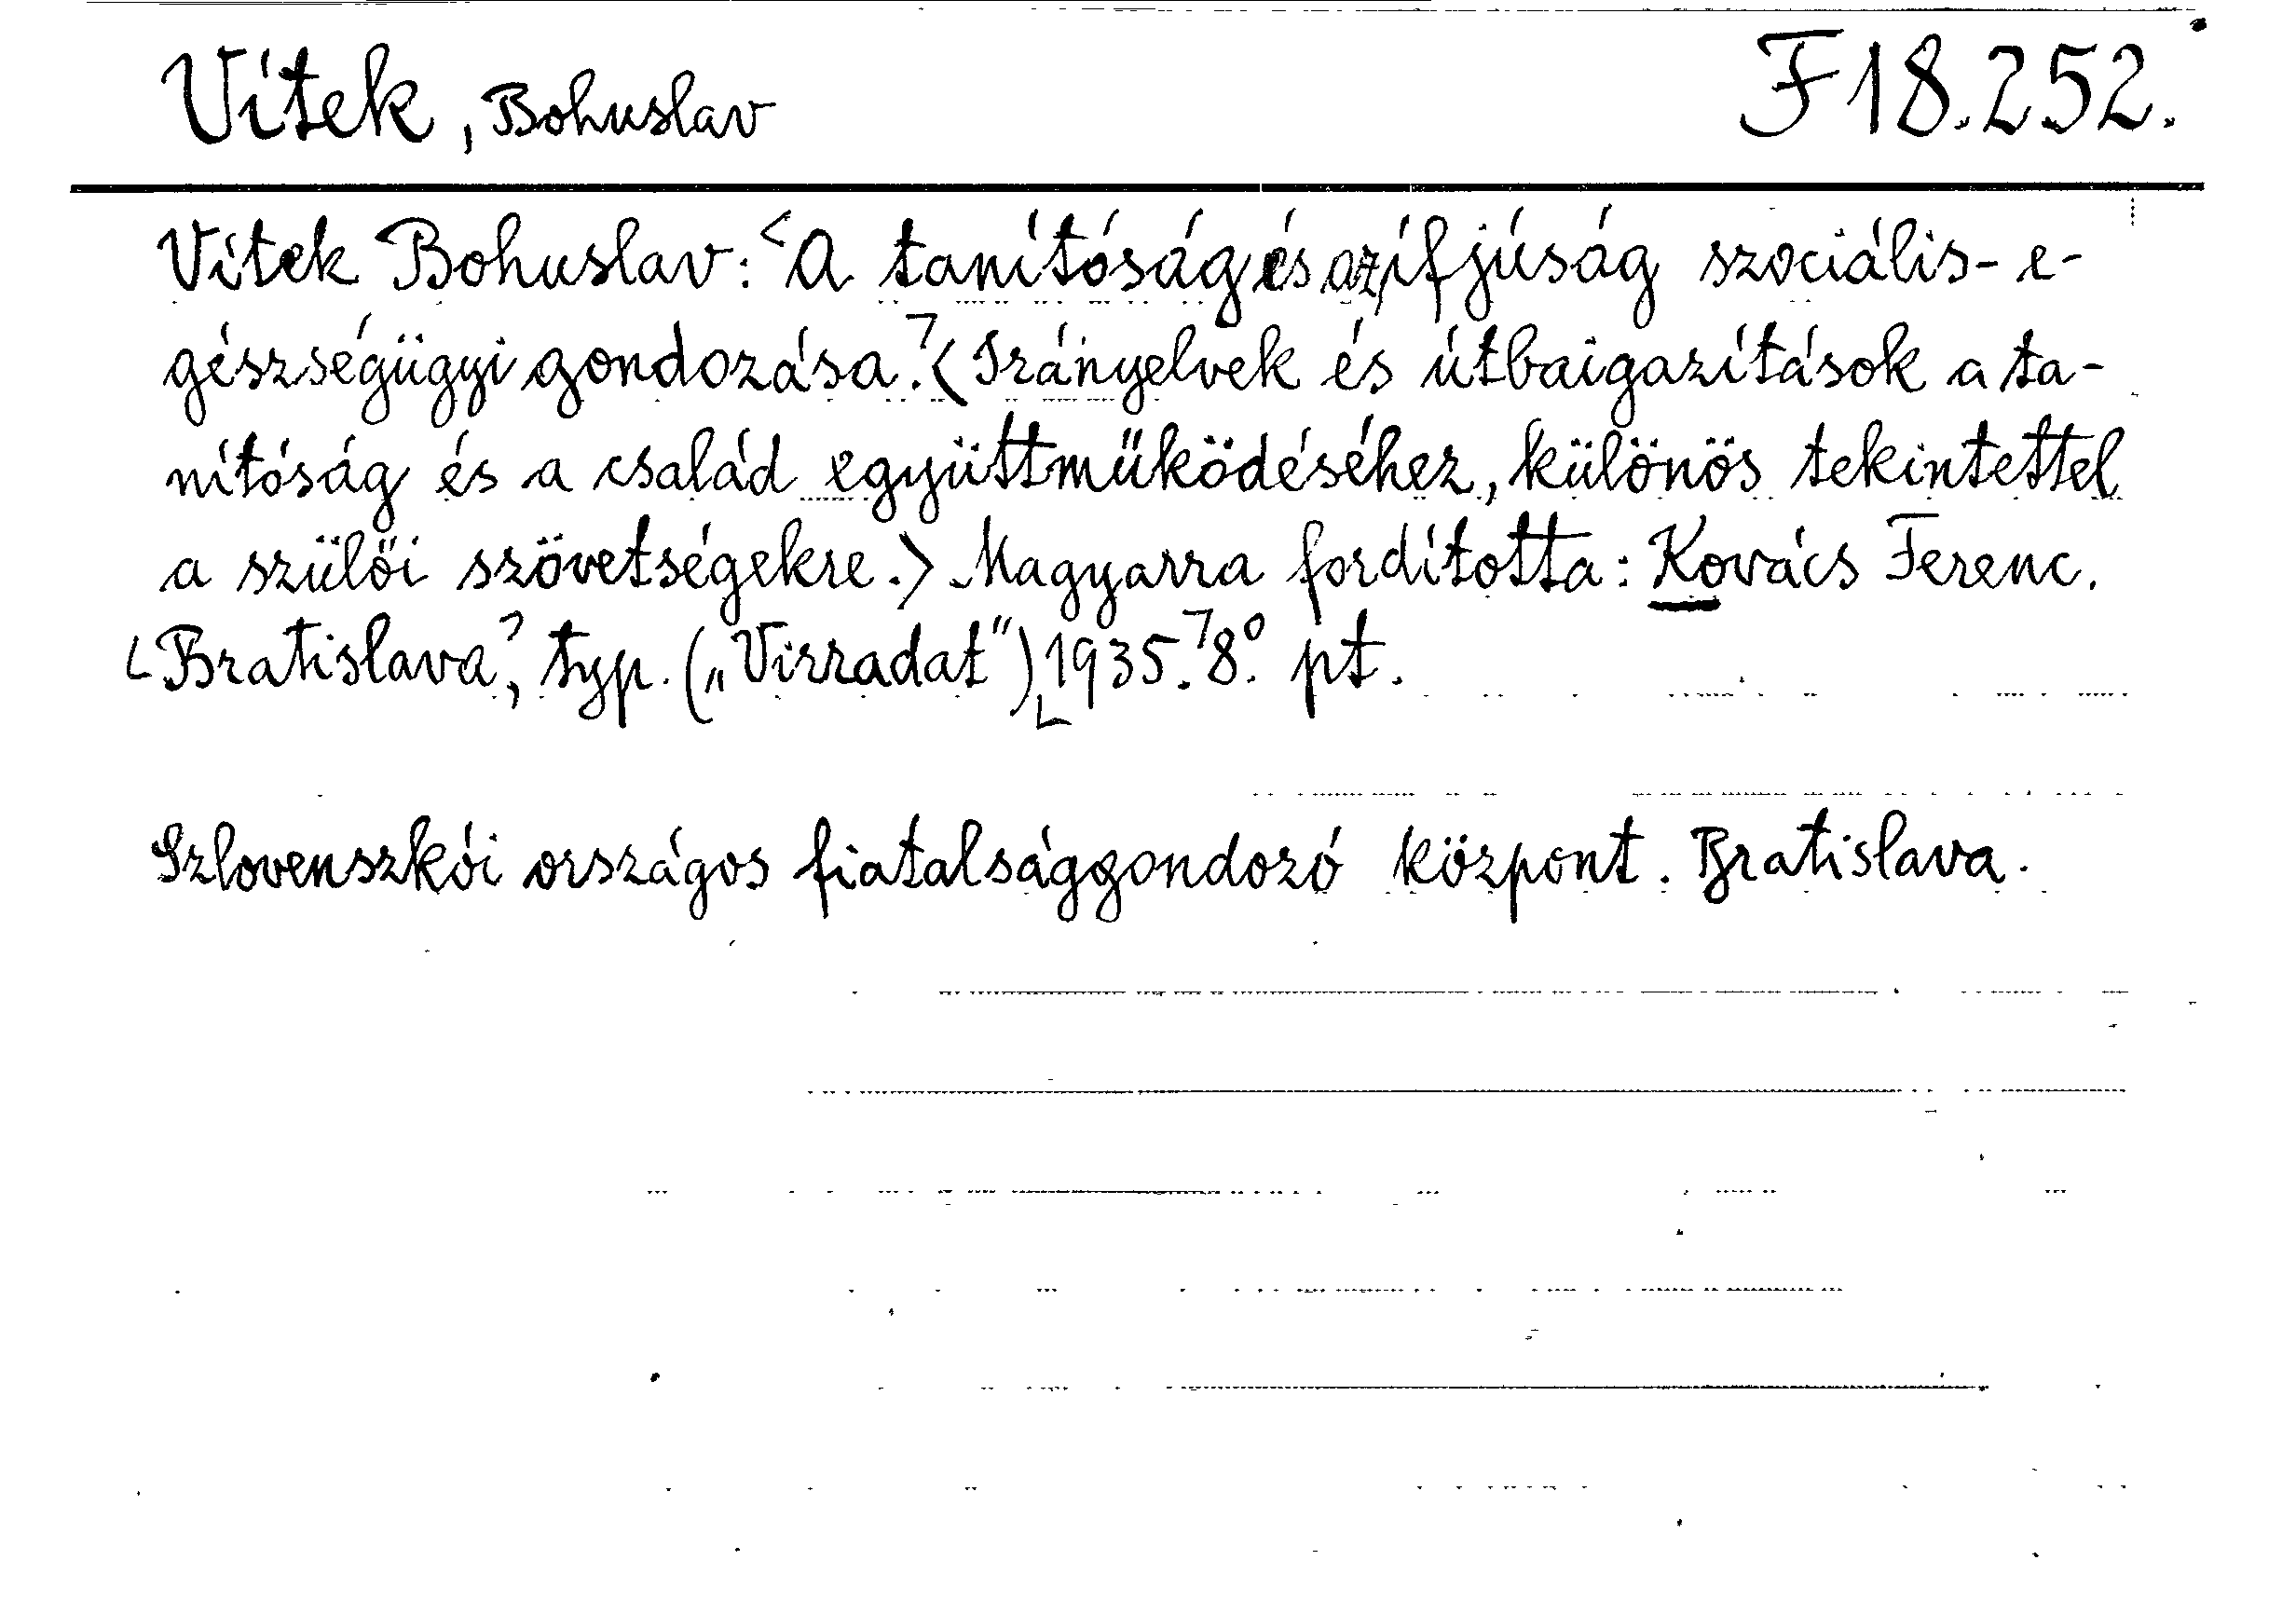 Vítek, Bohuslav F 18.252.
Vítek Bohuslav: <A tanítóság és az ifjúság szociális-e-
gészségügyi gondozása.⁊ <Irányelvek és útbaigazítások a ta-
nítóság és a család együttműködéséhez, különös tekintettel
a szülői szövetségekre.> Magyarra fordította: Kovács Ferenc.
⌊Bratislava,⁊ typ. („Virradat") ⌊1935.⁊ 8°. pt.
Szlovenszkói országos fiatalsággondozó központ. Bratislava.